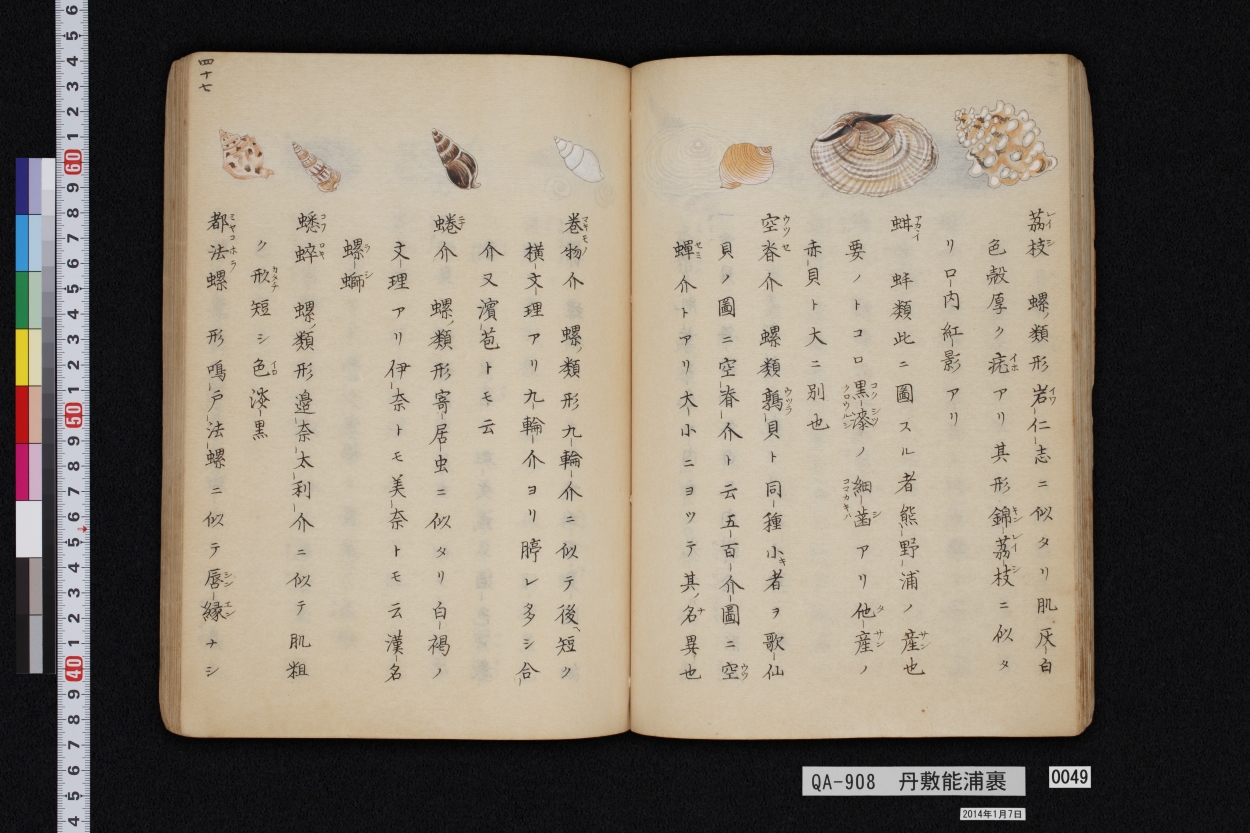 荔枝 螺ノ類形岩仁志ニ似タリ肌灰白
色殼厚ク疣アリ其形錦荔枝ニ似タ
リ口内紅影アリ
蚶 蚌類此ニ圖スル者熊野浦ノ産也
要ノトコロ黒漆ノ細歯アリ他産ノ
赤貝ト大ニ別也
空脊介 螺類鶉貝ト同種小者ヲ歌仙
貝ノ圖ニ空脊介ト云五百介圖ニ空
蟬介トアリ大小ニヨッテ其名異也
巻物介 螺ノ類形九輪介ニ似テ後短ク
横文理アリ九輪介ヨリ脝レ多シ合
介又濱苞トモ云
蜷介 螺ノ類形寄居虫ニ似タリ白褐ノ
文理アリ伊奈トモ美奈トモ云漢名
螺螄
蟋蟀 螺ノ類形邉奈太利介ニ似テ肌粗
ク形短シ色淡黒
都法螺 形鳴戸法螺ニ似テ唇縁ナシ
四十七
QA-908 丹敷能浦裏
0049
2014年1月7日